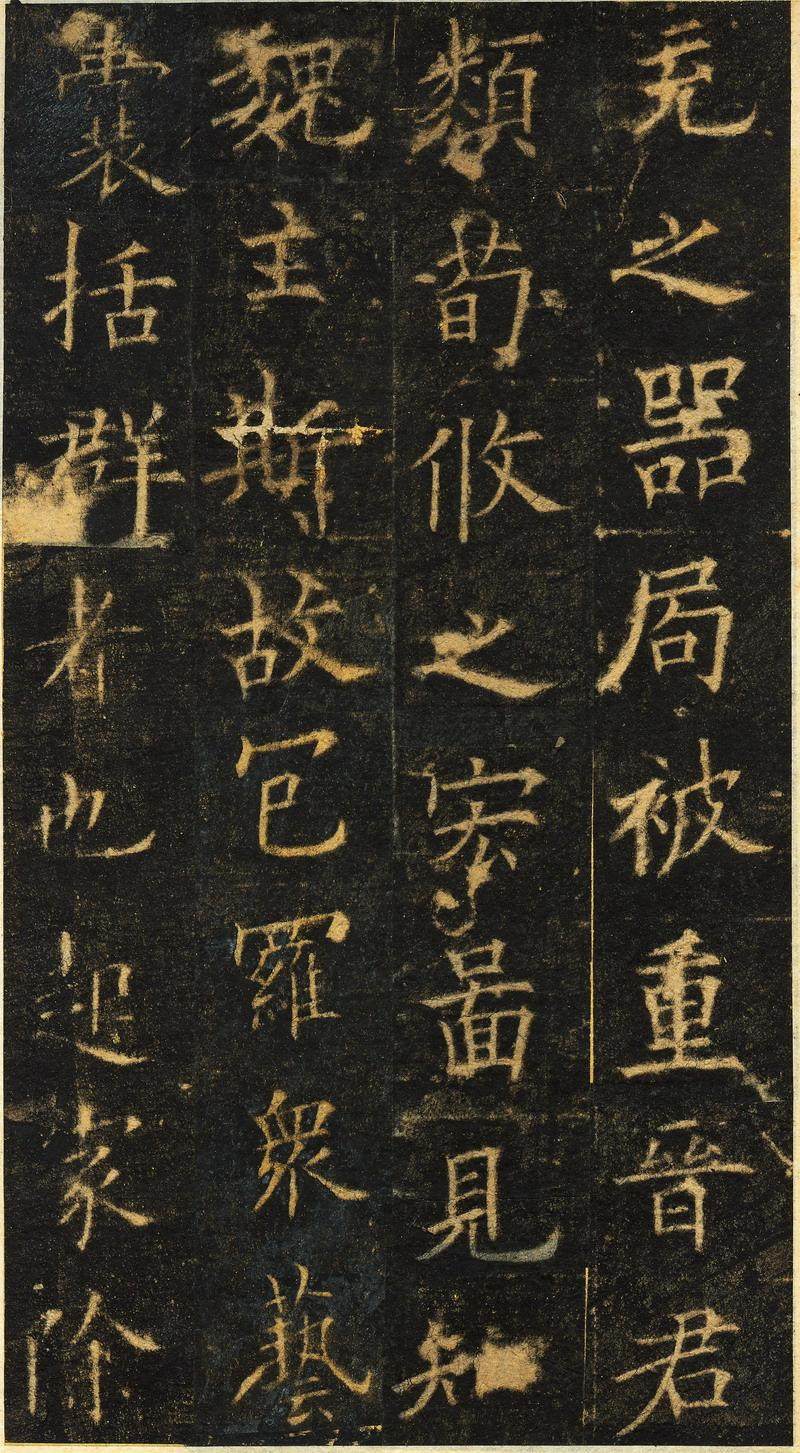 充之器局被重晉君
類荀攸之宏圖見知
魏主斯故包羅眾藝
囊括群者也起家除